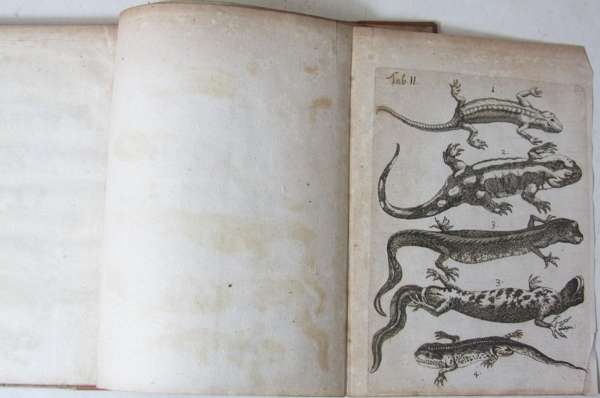 Tab. II.
1.
2.
3.
3.
4.